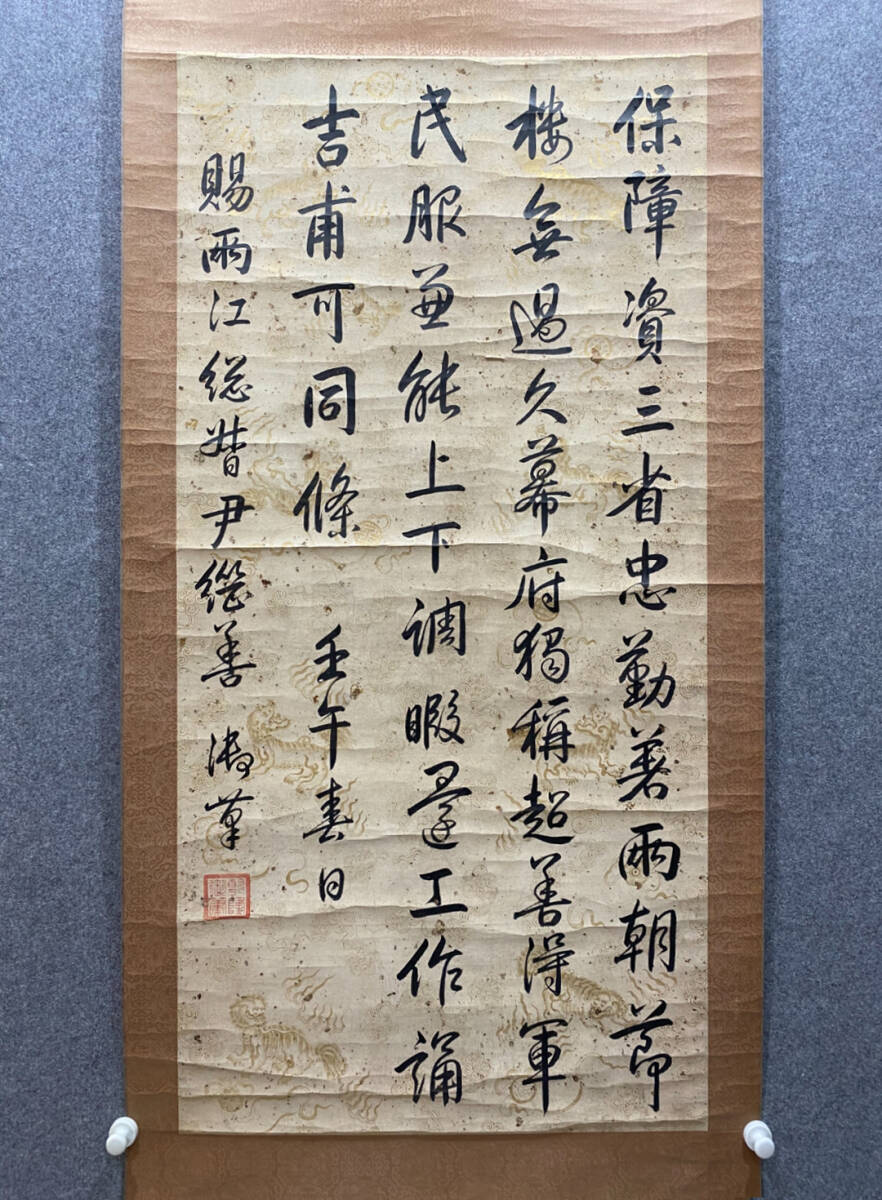 保障資三省忠勤著兩朝節
樓無過久幕府獨稱超善得軍
民服兼能上下調暇還工作誦
吉甫可同條 壬午春日
賜兩江総督尹継善 御筆